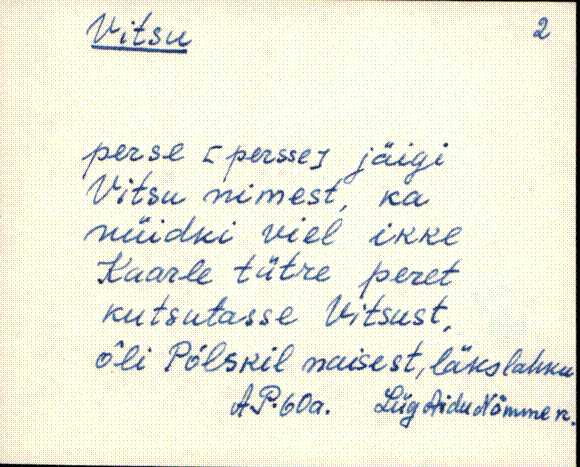 Vitsu 2
perse [persse] jäigi
Vitsu nimest, ka
nüidki viel ikke
Kaarle tütre peret
kutsutasse Vitsust,
õli Põlskil naisest, läks lahku
A.P. 60a. Lüg Aidu Nõmme n.